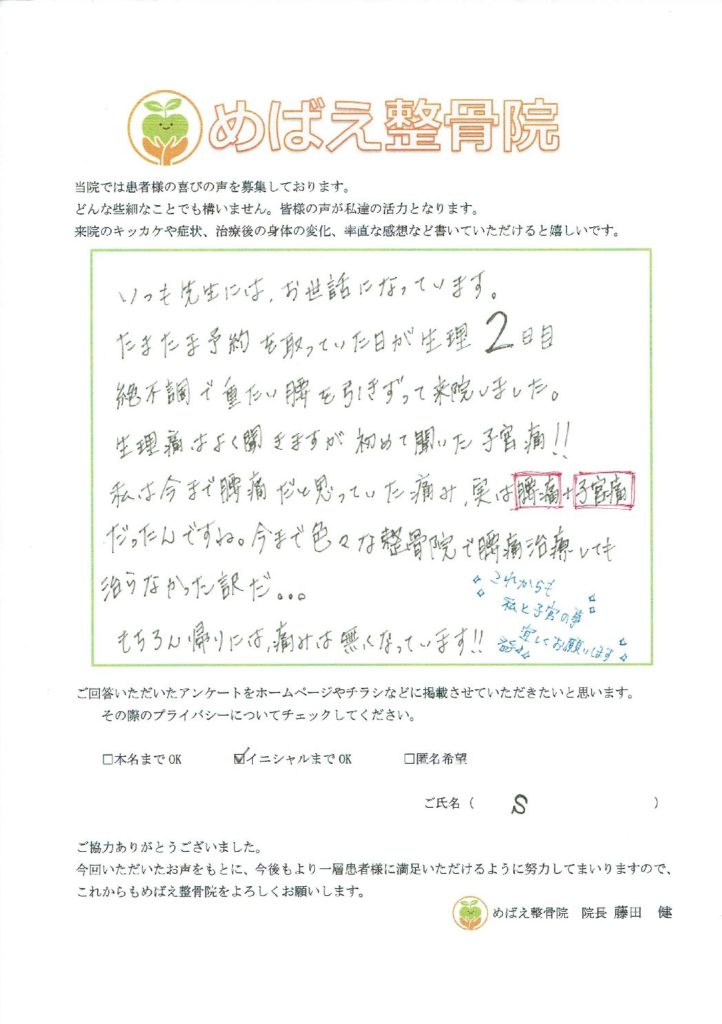 めばえ整骨院
当院では患者様の喜びの声を募集しております。
どんな些細なことでも構いません。皆様の声が私達の活力となります。
来院のキッカケや症状、治療後の身体の変化、率直な感想など書いていただけると嬉しいです。
いつも先生には、お世話になっています。
たまたま予約を取っていた日が生理2日目
絶不調で重たい腰を引きずって来院しました。
生理痛はよく聞きますが初めて聞いた子宮痛!!
私は今まで腰痛だと思っていた痛み、実は腰痛+子宮痛
だったんですね。今まで色々な整骨院で腰痛治療しても
治らなかった訳だ...
もちろん帰りには、痛みは無くなっています!!
これからも
私と子宮の事
宜しくお願いします
ご回答いただいたアンケートをホームページやチラシなどに掲載させていただきたいと思います。
その際のプライバシーについてチェックしてください。
□本名までOK ☑イニシャルまでOK □匿名希望
ご氏名( S )
ご協力ありがとうございました。
今回いただいたお声をもとに、今後もより一層患者様に満足いただけるように努力してまいりますので、
これからもめばえ整骨院をよろしくお願いします。
めばえ整骨院 院長 藤田 健